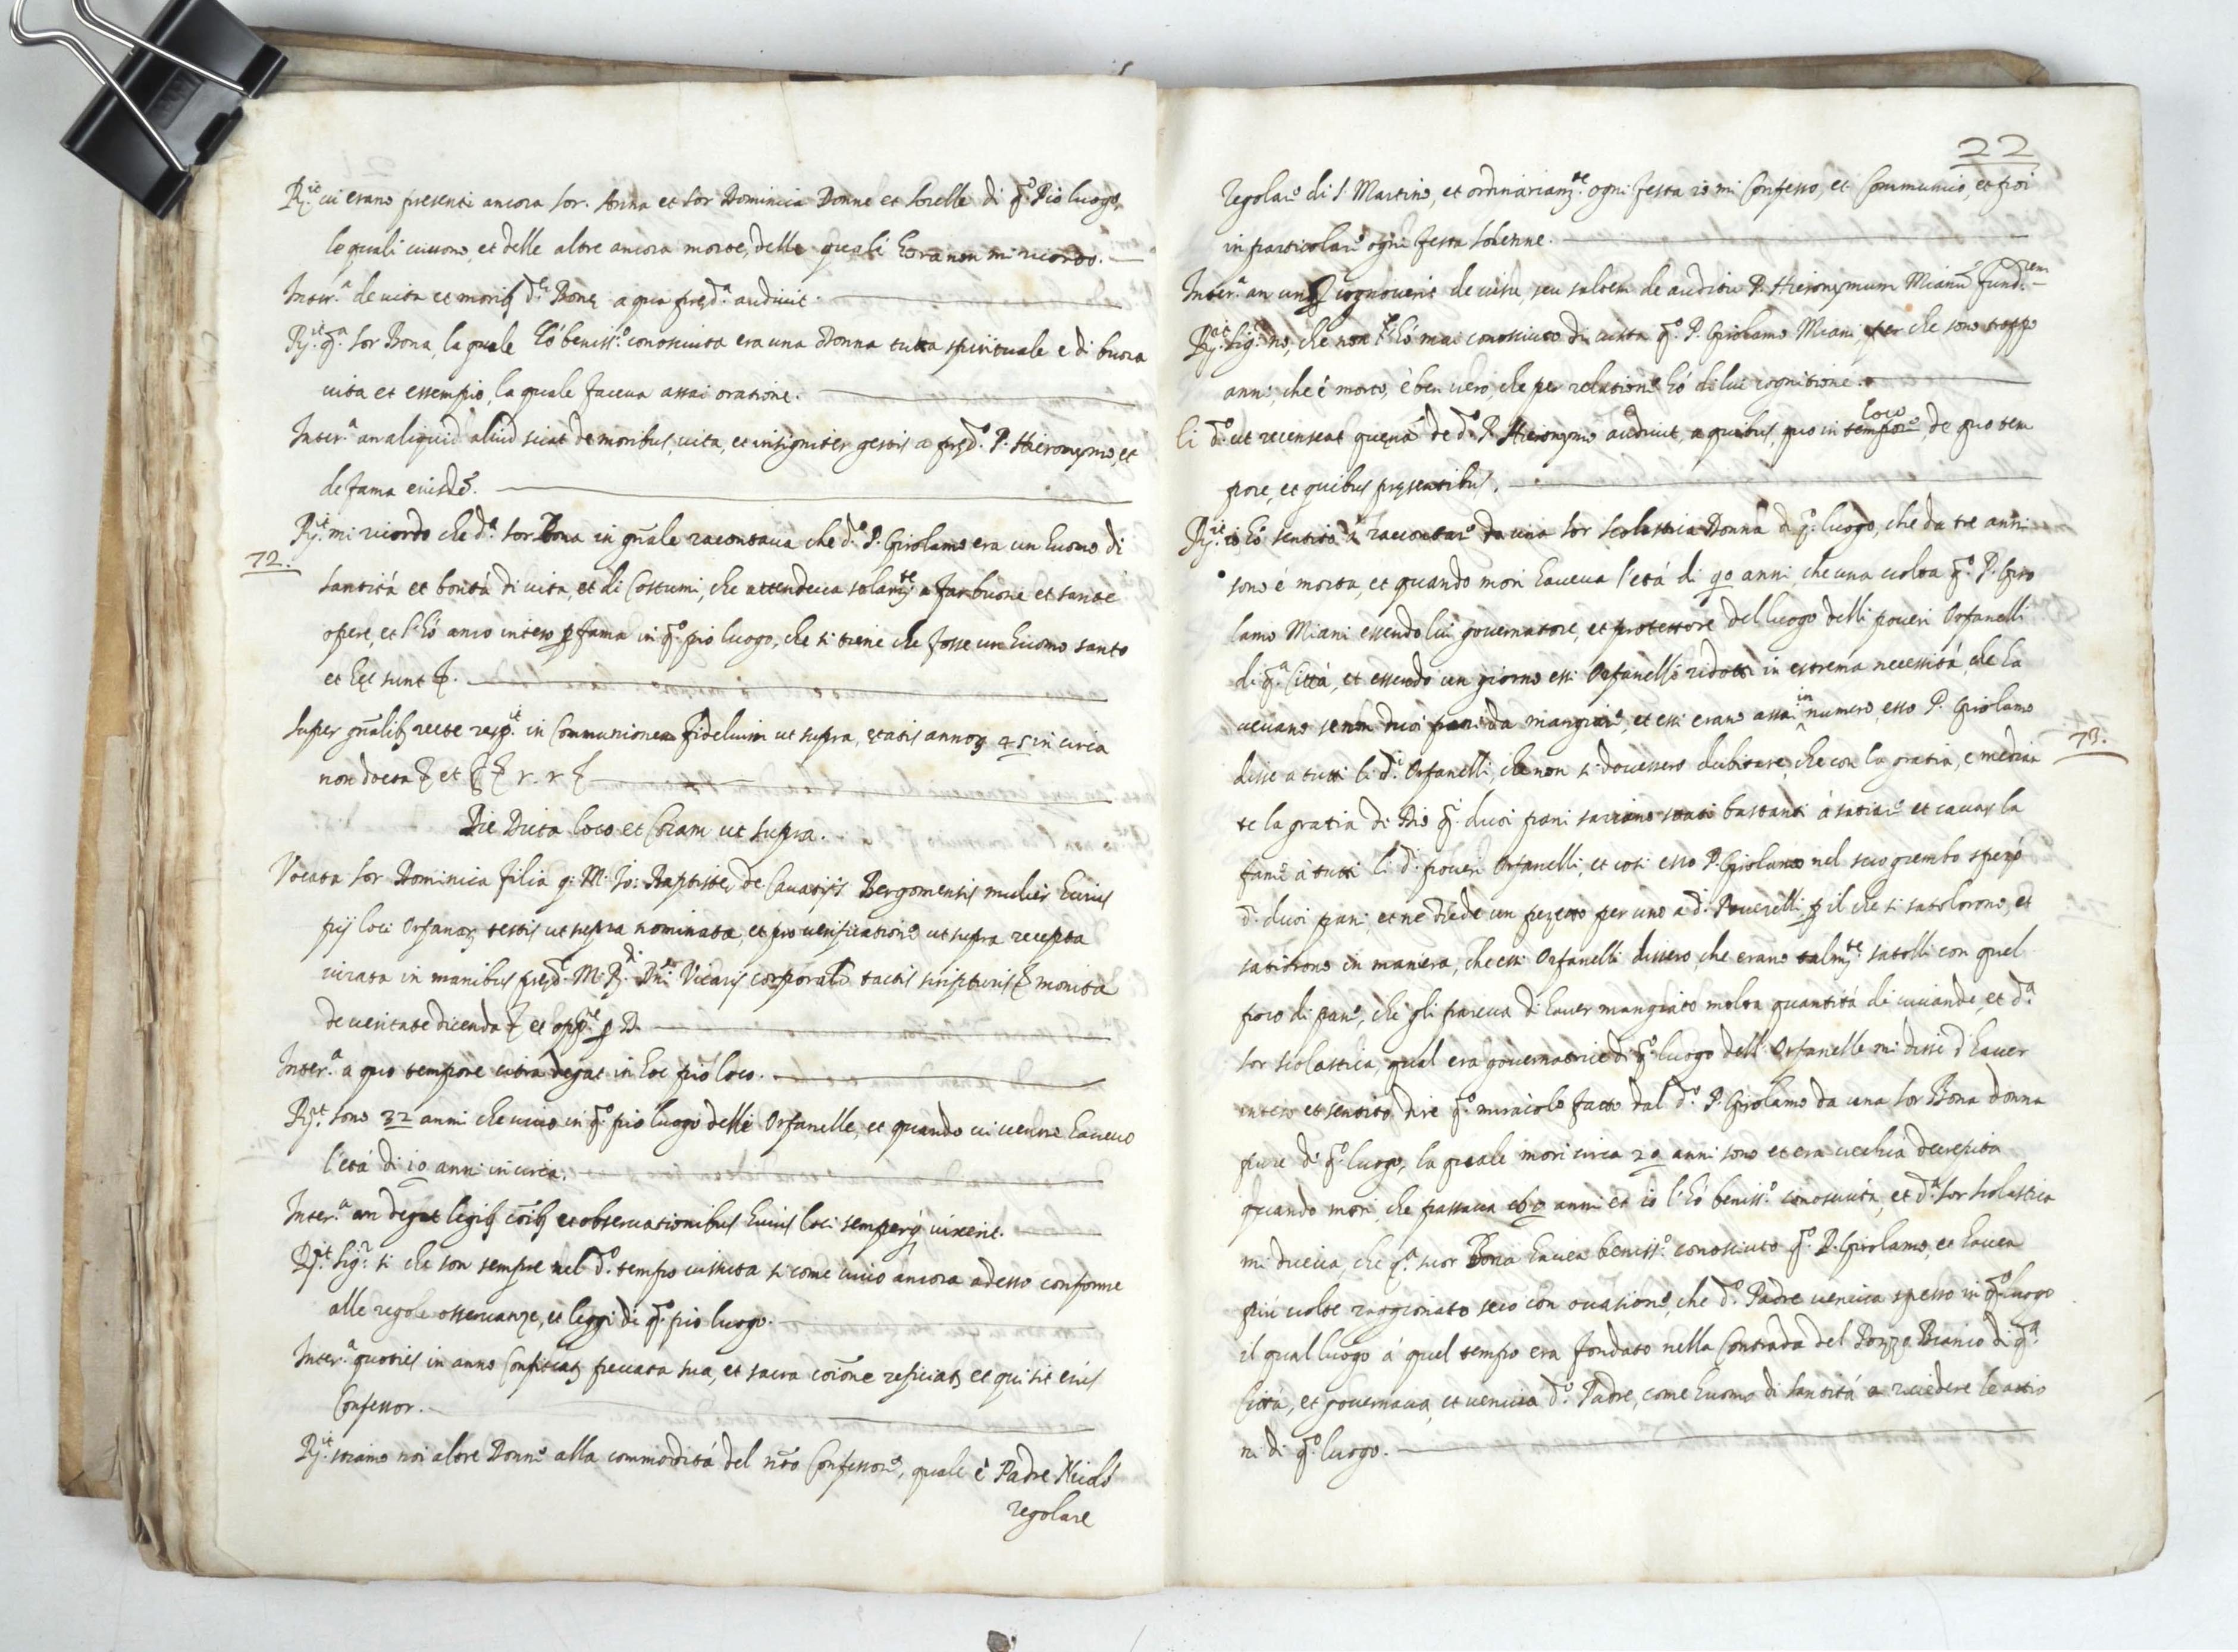 R.it vi erano presenti ancora sor. Anna et sor Dominica Donne et sorelle di q.o Pio luogo,
le quali vivono, et delle altre ancora morte, delle quali hora non mi ricordo.
Inter.a de vita et morib9 d.ę Bonę a qua pręd.a audivit.
R.it q.a sor Bona, la quale hò beniss.o conosciuta era una Donna tutta spirituale e di buona
vita et essempio, la quale faceva assai oratione.
Inter.a an aliquid aliud sciat de moribus, vita, et insigniter gestis a pręd.o P. Hieronymo, et
de fama eiusdē.
72.
R.it mi ricordo che d.a sor Bona in gn̄ale racontava che d.o P. Girolamo era un huomo di
santità et bontà di vita, et di Costumi, che attendeva solam.te a far buone et sante
opere, et l'hò anco inteso p fama in q.o pio luogo, che si tiene che fosse un huomo santo
et hęc sunt &.
Super gn̄alib9 recte resp.it in Communionem fidelium ut supra, ętatis annor 45 in circa
non docta & et r. r &
Die Dicta loco et Coram ut supra.
Vocata sor Dominica filia q. M. Jo: Baptistę de Cavatijs Bergomensis mulier huius
pij loci Orfanar, testis ut supra nominata, et pro verificatione ut supra recepta
iurata in manibus pręd.i M. R.di Dn̄i Vicarij corporalr tactis scripturis & monita
de veritate dicenda & et opp.ne p D.
Inter.a a quo tempore citra degat in hoc pio loco.
R.it sono 32 anni che vivo in q.o pio luogo delle Orfanelle, et quando vi venne havevo
l'età di 10 anni in circa.
Inter.a an degat legib9 cōib9 et observationibus huius loci semperq vixerit.
R.it sig.r si che son sempre nel d.o tempo vissuta si come vivo ancora adesso conforme
alle regole osservanze, et leggi di q.o pio luogo.
Inter.a quoties in anno Confiteat peccata sua, et sacra cōione reficiat et qui sit eius
Confessor.
R.it stiamo noi altre Donne alla commodità del nr̄o Confessore, quale è Padre
regolare
22
regolare di S. Martino, et ordinariam.te ogni festa io mi Confesso, et Communico, et poi
in particolare ogni festa solenne.
Inter.a an cognoverit de visu, seu saltem de auditu P. Hieronymum Mianū fund.rem
R.it sig.r no, che non l'hò mai conosciuto di vista q.o P. Girolamo Miani, per che sono troppo
anni, che è morto, è ben vero, che per relatione hò di lui cognitione.
Ei d.o ut recenseat quęnā de d.o P. Hieronymo audivit, a quibus, quo in tempore loco, de quo tem
pore, et quibus pręsentibus.
R.it io hò sentito à raccontare da una sor Scolastica Donna di q.o luogo, che da tre anni
sono è morta, et quando morì haveva l'età di 90 anni che una volta q.o P. Giro
lamo Miani essendo lui governatore, et protettore del luogo delli poveri Orfanelli
di q.a Città, et essendo un giorno essi Orfanelli ridotti in estrema necessità, che ha
vevano se non duoi pani da mangiare, et essi erano assai in numero, esso P. Girolamo
73.
disse a tutti li d.i Orfanelli, che non si dovessero dubitare, che con la gratia, e median
te la gratia di Dio q.i duoi pani sariano stati bastanti à satiare et cavar la
fame à tutti li d.i poveri Orfanelli, et così esso P. Girolamo nel suo grembo spezò
d.i duoi pani, et ne diede un pezetto per uno a d.i Poverelli, p il che si satolorono, et
satiorono in maniera, che essi Orfanelli dissero, che erano talm.te satolli con quel
poco di pane, che gli pareva di haver mangiato molta quantità di vivande, et d.a
sor Scolastica, qual era governatrice di q.o luogo dell' Orfanelle mi disse d'haver
inteso et sentito dire q.o miracolo fatto dal d.o P. Girolamo da una sor Bona donna
pure di q.o luogo, la quale morì circa 29 anni sono et era vecchia decrepita
quando morì, che passava anni et io l'hò beniss.o conosciuta, et d.a sor Scolastica
mi diceva, che q.a suor Bona havea beniss.o conosciuto q.o P. Girolamo, et havea
più volte raggionato seco con occasione, che d.o Padre veniva spesso in q.o luogo
il qual luogo à quel tempo era fondato nella Contrada del Pozzo Bianco di q.a
Città, et governava, et veniva d.o Padre, come huomo di santità a rivedere le attio
ni di q.o luogo.